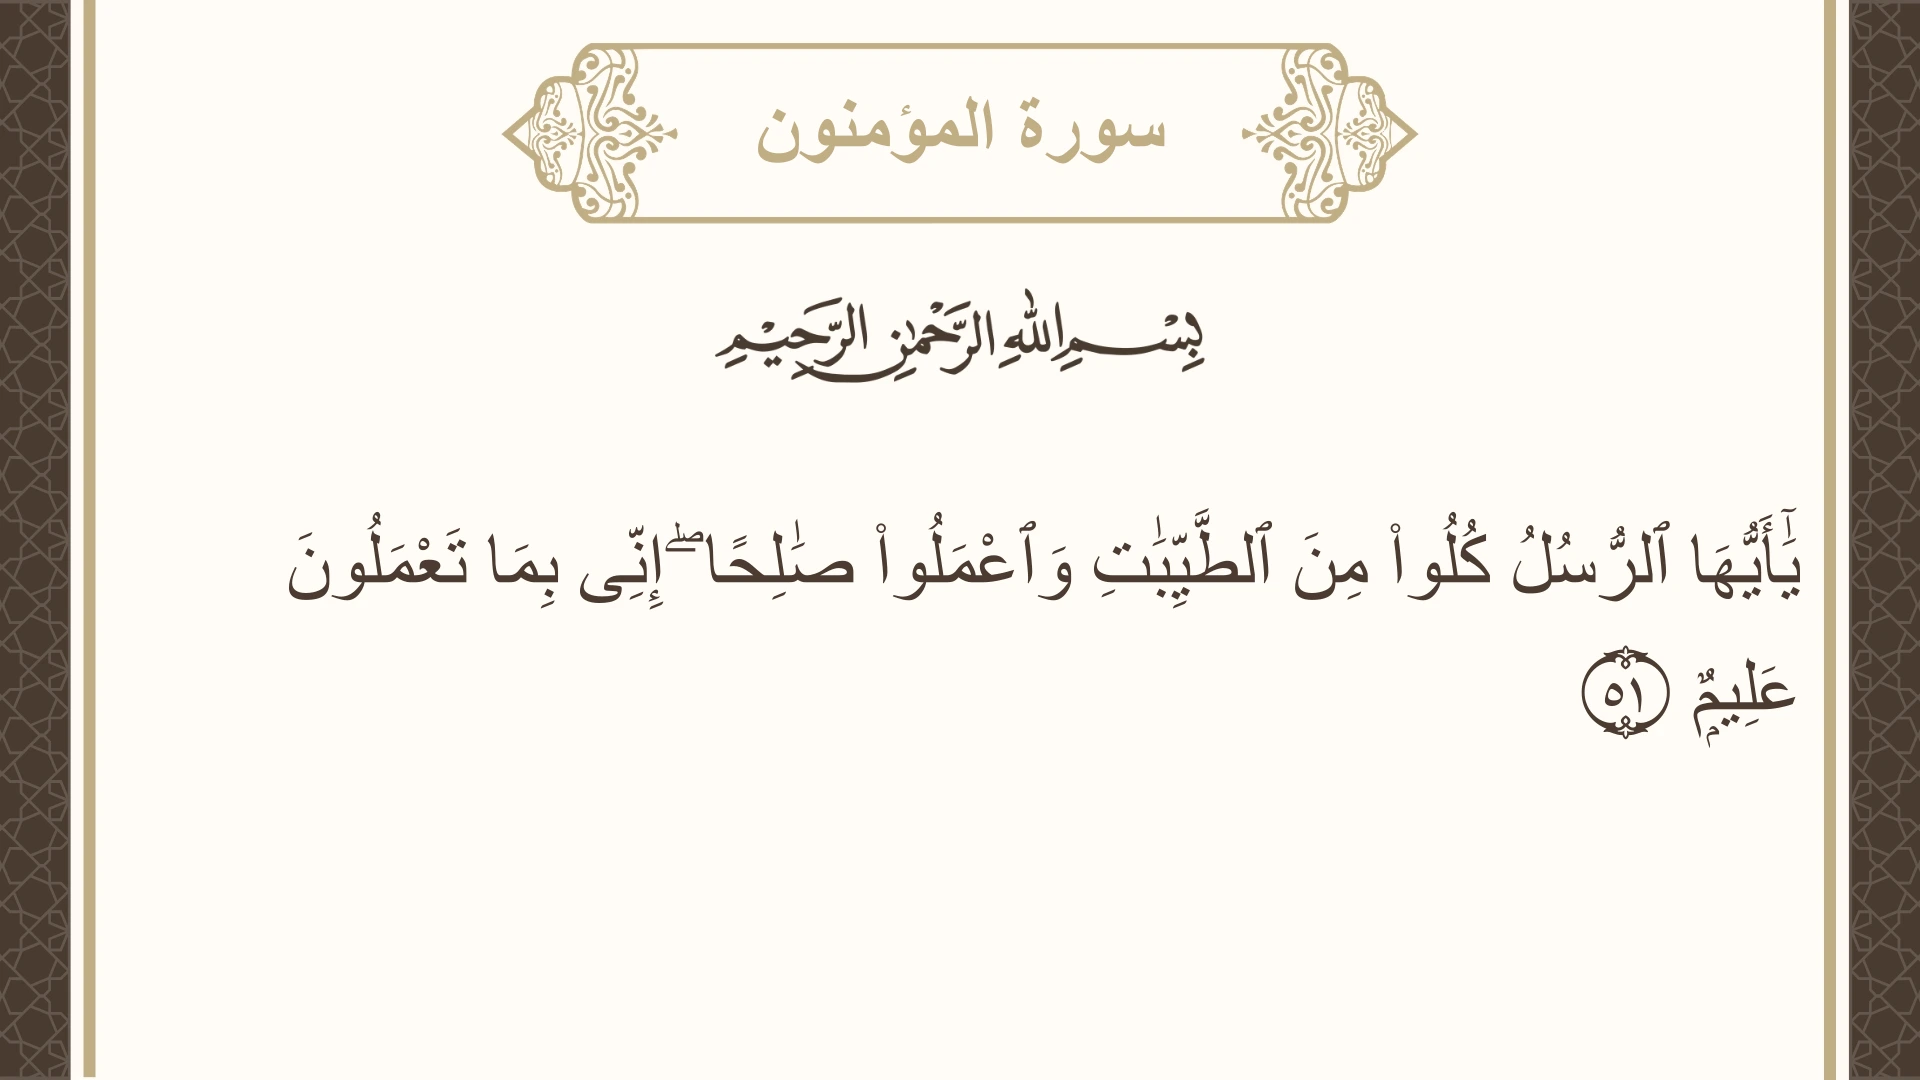 سورة المؤمنون
بِسْمِ اللهِ الرَّحْمٰنِ الرَّحِيْمِ
يَٰٓأَيُّهَا ٱلرُّسُلُ كُلُوا۟ مِنَ ٱلطَّيِّبَٰتِ وَٱعْمَلُوا۟ صَٰلِحًا ۖ إِنِّى بِمَا تَعْمَلُونَ
عَلِيمٌۭ ٥١